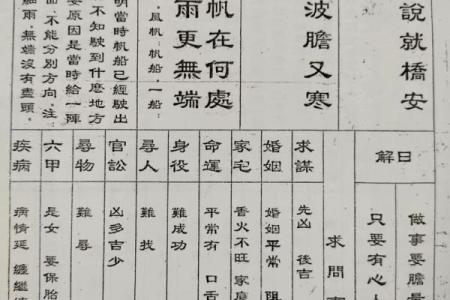 說就橋安
波膽又寒
帆在何處
雨更無端
,風帆:帆船,一船:
明當時帆船已經駛出
不知駛到什麼地方
要原因是當時給一陣
面,不能分別方向。注:
細雨,無端沒有盡頭。
日解
做事要膽
只要有心
求問
求謀
先凶 後吉
婚姻
婚姻平常 阻
家宅
香火不旺 家
命運
平常有 口舌
身役
難成功
尋人
難找
官訟
凶多吉少
尋物
難尋
六甲
是女 要保胎
疾病
病情延 纏繼